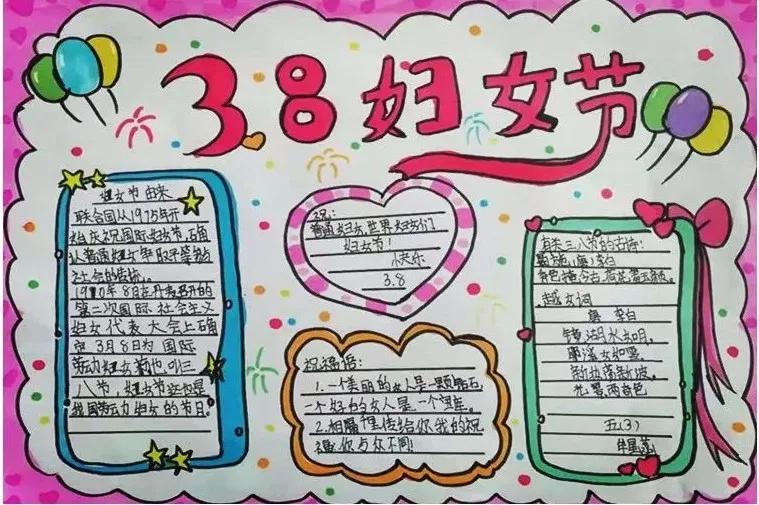 3.8妇女节
妇女节由来
联合国从1975年开
始庆祝国际妇女节,确
认普通妇女争取平等参
与社会的传统。
年8月在丹麦召开的
第二次国际社会主义
妇女代表大会上确
定3月8日为国际
劳动妇女节,也叫三
八节,妇女节这也是
我国劳动妇女的节日。
祝:
普通妇女,世界妇女们
妇女节!
快乐
3.8
祝福语:
1.一个美丽的女人是一颗钻石,
一个好的女人是一个宝库。
2.相隔千里传给你我的祝
福,你与众不同!
有关三八节的古诗:
西施,唐,李白
越女词
唐 李白
镜湖水如月,
耶溪女如雪。
新妆荡新波,
光景两奇色
五(3)